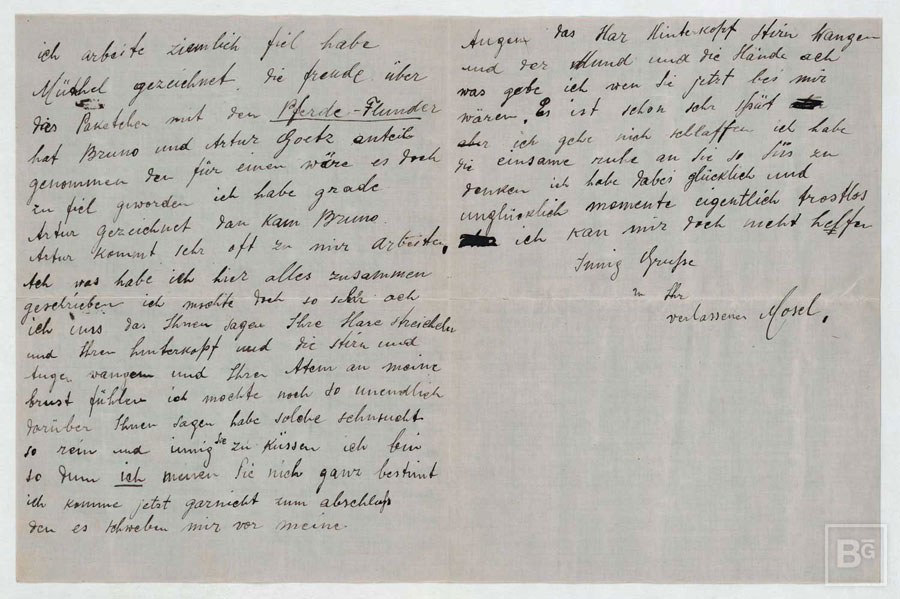 ich arbeite ziemlich fiel habe
Müthel gezeichnet. die freude über
dies Paketchen mit den Pferde-Flunder
hat Bruno und Artur Goetz anteil
genommen den für einen wäre es doch
zu fiel geworden ich habe grade
Artur gezeichnet dan kam Bruno.
Artur kommt sehr oft zu mir Arbeiten,
Ach was habe ich hier alles zusammen
geschrieben ich mochte doch so sehr ach
ich mus das Ihnen sagen Ihre Hare streicheln
und Ihren hinterkopf und die stirn und
Augen wangen und Ihren Atem an meine
brust fühlen ich mochte noch so unendlich
darüber Ihnen sagen habe solche sehnsucht
so rein und innig Sie zu küssen ich bin
so dum ich meinen Sie nich ganz bestimt
ich komme jetzt garnicht zum abschluss
den es schweben mir vor meine
Augen das Har Hinterkopf Stirn Wangen
und der Mund und die Hände ach
was gebe ich wen Sie jetzt bei mir
wären. Es ist schon sehr spät
aber ich gehe nich schlaffen ich habe
die einsame ruhe an Sie so Süs zu
denken ich habe dabei glücklich und
unglücklich momente eigentlich trostlos
ich kan mir doch nicht helfen
Innig Grusse
Ihr
verlassener Mosel,
BG